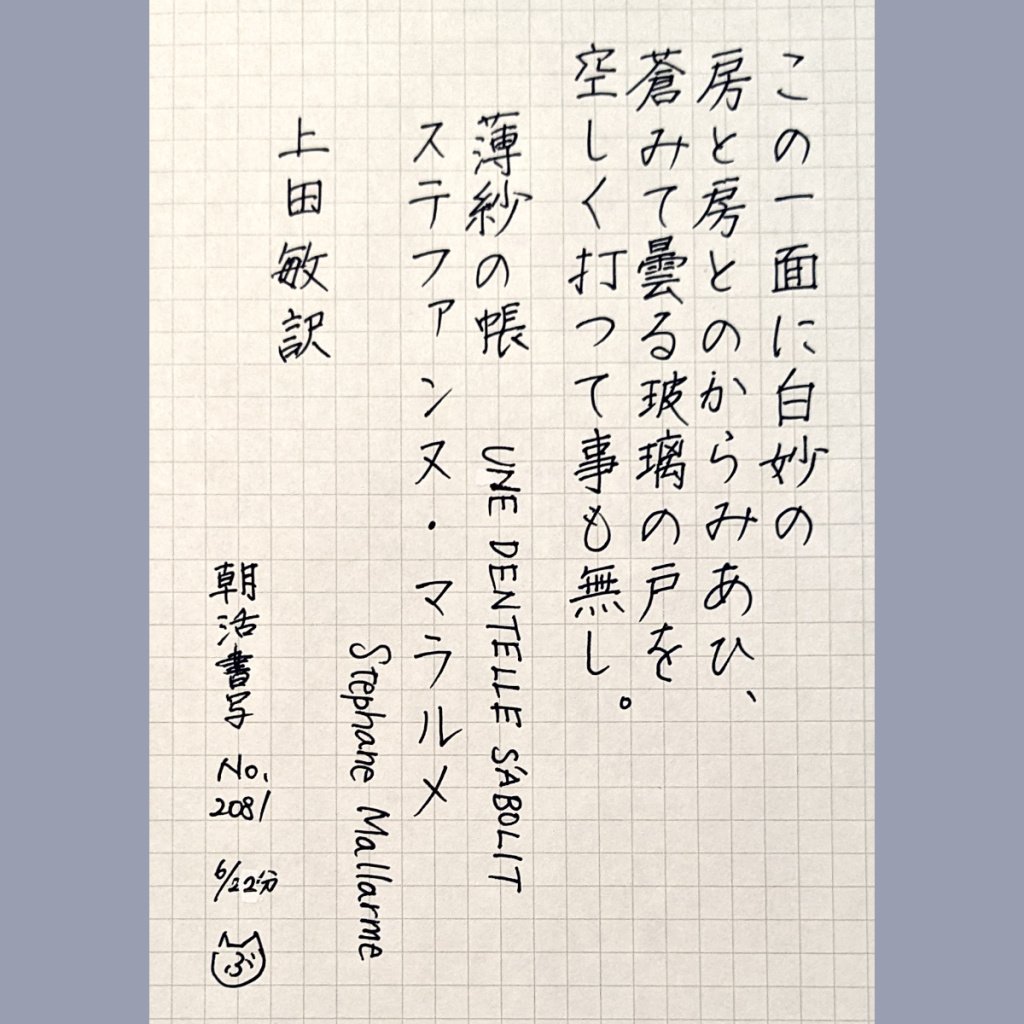 この一面に白妙の
房と房とのからみあひ、
蒼みて曇る玻璃の戸を
空しく打つて事も無し。
薄紗の帳 UNE DENTELLE S'ABOLIT
ステファンヌ・マラルメ
Stephane Mallarme
上田敏訳
朝活書写
No.
2081
6/22分
ぶ